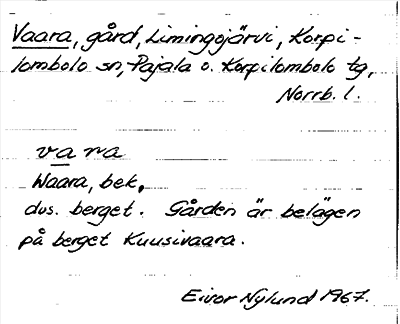 Vaara, gård, Limingojärvi, Korpi-
lombolo sn, Pajala o. Korpilombolo tg,
Norrb. l.
vara
Waara, bek,
dvs. berget. Gården är belägen
på berget Kuusivaara.
Eivor Nylund 1967.